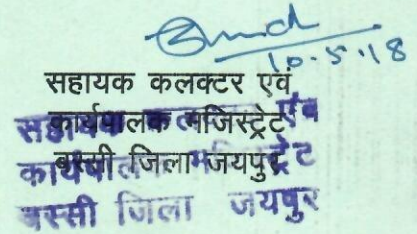 10.5.18
सहायक कलक्टर एवं
कार्यपालक मजिस्ट्रेट
बस्सी जिला जयपुर
सहायक कलक्टर एवं
कार्यपालक मजिस्ट्रेट
बस्सी जिला जयपुर